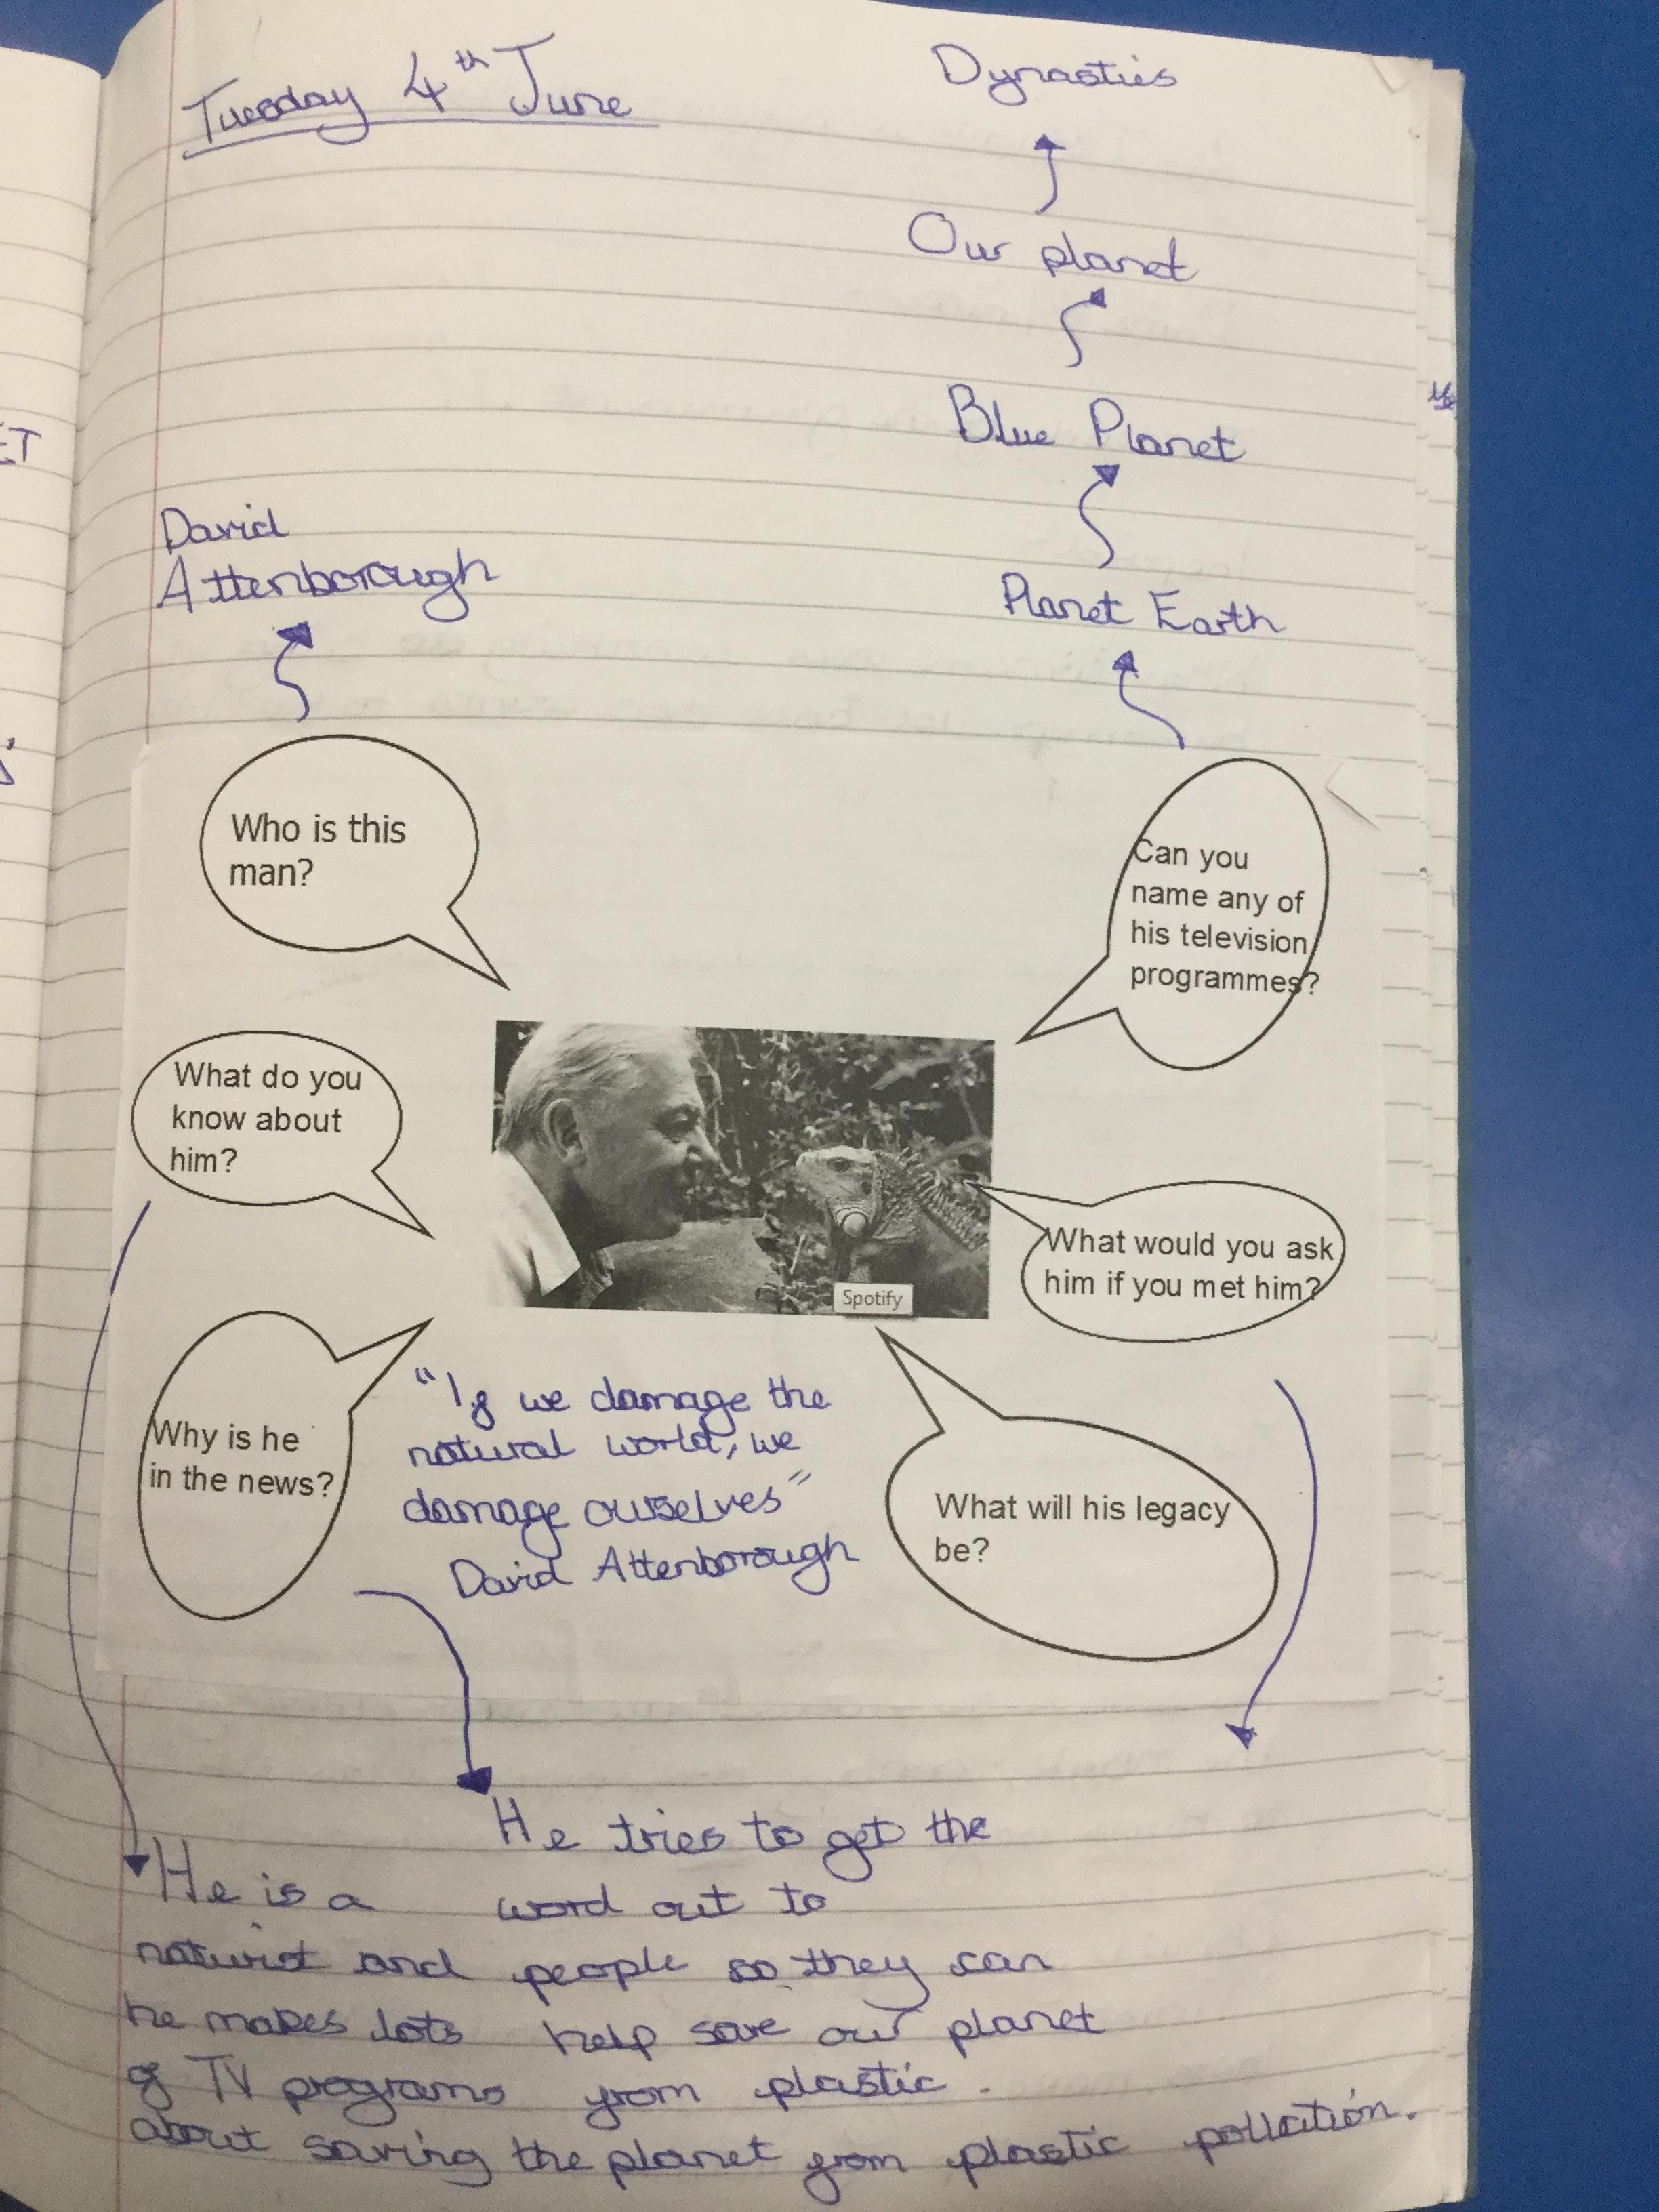 Tuesday 4th June
Dynasties
Our planet
Blue Planet
Planet Earth
David
Attenborough
Who is this
man?
Can you
name any of
his television
programmes?
What do you
know about
him?
What would you ask
him if you met him?
Spotify
Why is he
in the news?
"If we damage the
natural world, we
damage ourselves"
David Attenborough
What will his legacy
be?
He tries to get the
word out to
people so they can
help save our planet
from plastic.
He is a
naturist and
he makes lots
of TV programs
about saving the planet from plastic pollution.
ET